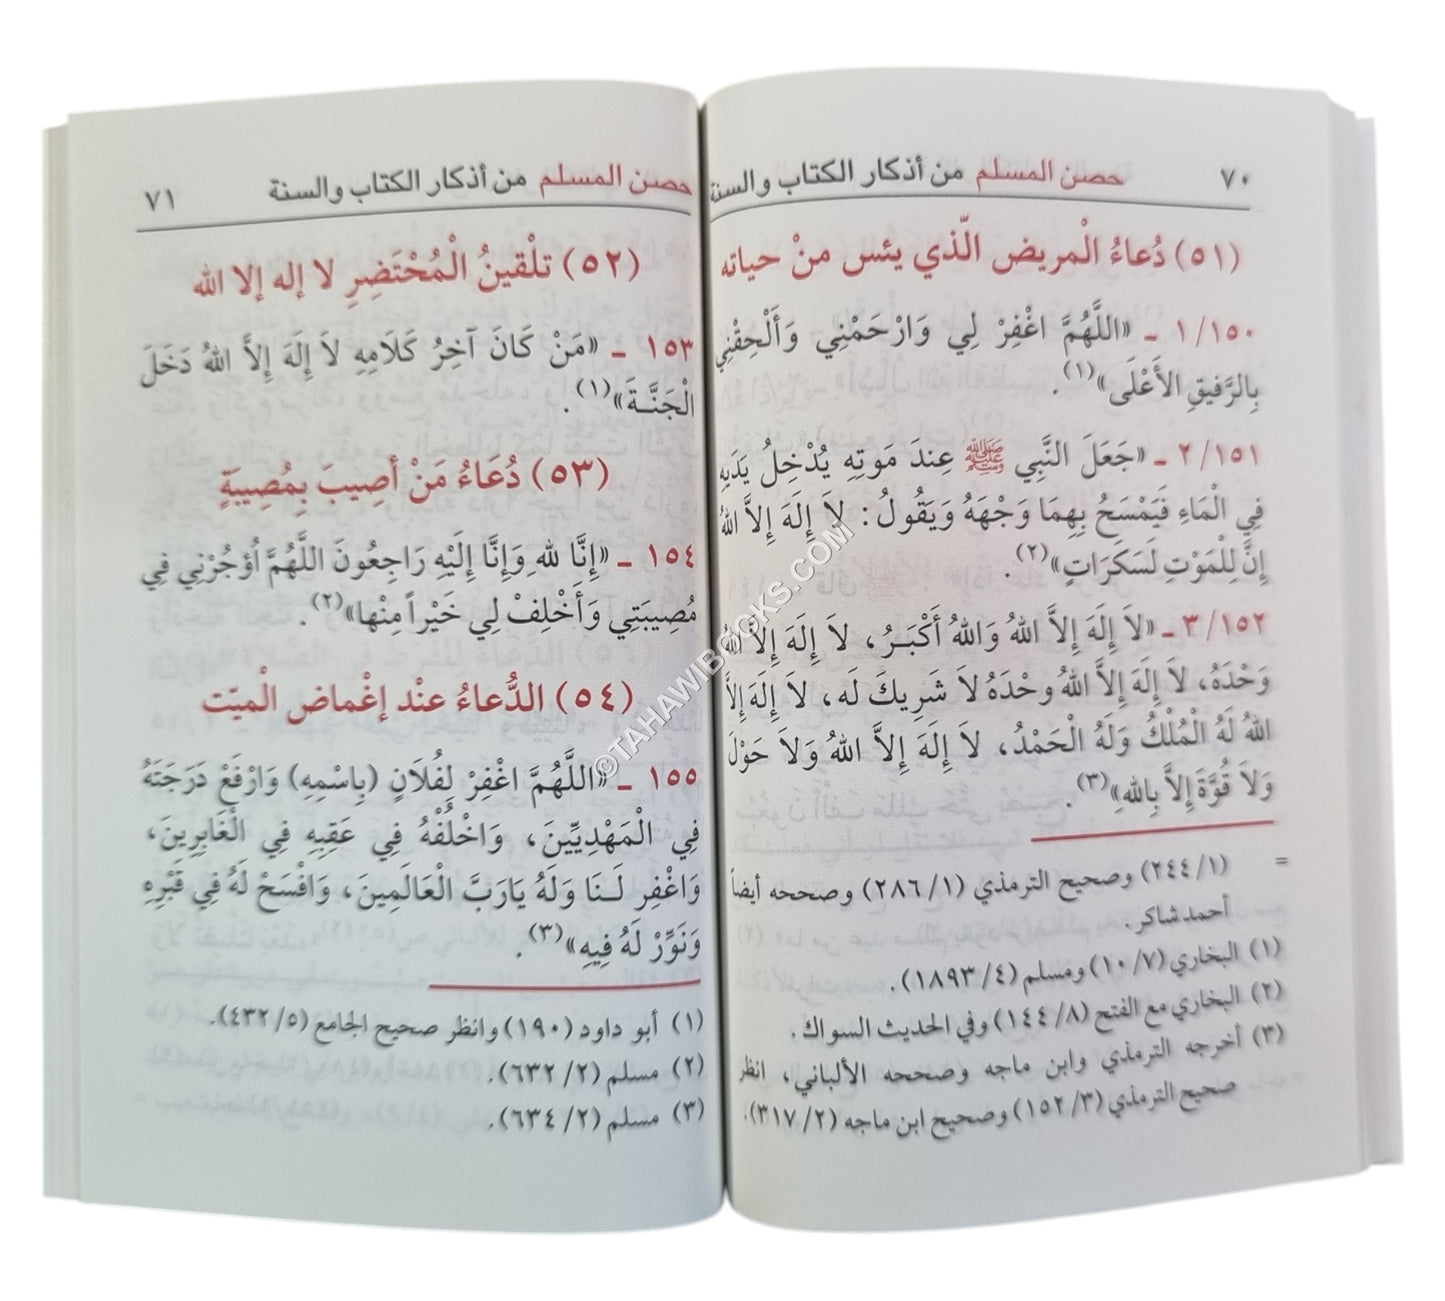 ٧٠ حصن المسلم من أذكار الكتاب والسنة
(٥١) دُعاءُ الْمريض الّذي يئس منْ حياته
١/١٥٠ ـ «اللَّهُمَّ اغْفِرْ لِي وَارْحَمْنِي وَأَلْحِقْنِي
بِالرَّفيقِ الأَعْلَى»(١).
٢/١٥١ ـ «جَعَلَ النَّبِي ﷺ عِندَ مَوتِهِ يُدْخِلُ يَدَيهِ
فِي الْمَاءِ فَيَمْسَحُ بِهِمَا وَجْهَهُ وَيَقُولُ: لاَ إِلَهَ إِلاَّ اللهُ
إِنَّ لِلْمَوْتِ لَسَكَرَاتٍ»(٢).
٣/١٥٢ ـ «لاَ إِلَهَ إِلاَّ اللهُ وَاللهُ أَكْبَـرُ، لاَ إِلَهَ إِلاَّ اللهُ
وَحْدَهُ، لاَ إِلَهَ إِلاَّ اللهُ وحْدَهُ لاَ شَرِيكَ لَه، لاَ إِلَهَ إِلاَّ
اللهُ لَهُ الْمُلْكُ وَلَهُ الْحَمْدُ، لاَ إِلَهَ إِلاَّ اللهُ وَلاَ حَوْلَ
وَلاَ قُوَّةَ إِلاَّ بِاللهِ»(٣).
= (١/٢٤٤) وصحيح الترمذي (١/٢٨٦) وصححه أيضاً
أحمد شاكر.
(١) البخاري (٧/١٠) ومسلم (٤/١٨٩٣).
(٢) البخاري مع الفتح (٨/١٤٤) وفي الحديث السواك.
(٣) أخرجه الترمذي وابن ماجه وصححه الألباني، انظر
صحيح الترمذي (٣/١٥٢) وصحيح ابن ماجه (٢/٣١٧).
حصن المسلم من أذكار الكتاب والسنة ٧١
(٥٢) تلْقينُ الْمُحْتَضِرِ لا إله إلا الله
١٥٣ ـ «مَنْ كَانَ آخِرُ كَلَامِهِ لاَ إِلَهَ إِلاَّ اللهُ دَخَلَ
الْجَنَّـةَ»(١).
(٥٣) دُعَاءُ مَنْ أصِيبَ بِمُصِيبَةٍ
١٥٤ ـ «إِنَّا للهِ وَإِنَّا إِلَيْهِ رَاجِعُونَ اللَّهُمَّ أُؤْجُرْنِي فِي
مُصِيبَتِي وَأَخْلِفْ لِي خَيْراً مِنْها»(٢).
(٥٤) الدُّعاءُ عنْد إغْماض الْميّت
١٥٥ ـ «اللَّهُمَّ اغْفِرْ لِفُلَانٍ (بِاسْمِهِ) وَارْفَعْ دَرَجَتَهُ
فِي الْمَهْدِيِّينَ، وَاخْلُفْهُ فِي عَقِبِهِ فِي الْغَابِرِينَ،
وَاغْفِر لَـنَا وَلَهُ يَارَبَّ الْعَالَمِينَ، وَافْسَحْ لَهُ فِي قَبْرِهِ
وَنَوِّرْ لَهُ فِيهِ»(٣).
(١) أبو داود (١٩٠) وانظر صحيح الجامع (٥/٤٣٢).
(٢) مسلم (٢/٦٣٢).
(٣) مسلم (٢/٦٣٤).
©TAHAWIBOOKS.COM